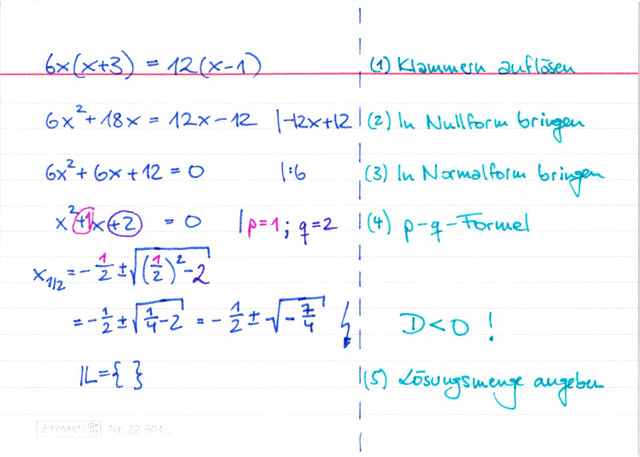 6x(x+3) = 12(x-1) (1) Klammern auflösen
6x²+18x = 12x-12 |-12x+12 (2) In Nullform bringen
6x²+6x+12=0 |:6 (3) In Normalform bringen
x²+1x+2 = 0 | p=1; q=2 (4) p-q-Formel
x_{1/2} = -1/2 ± √((1/2)²-2)
= -1/2 ± √(1/4-2) = -1/2 ± √(-7/4) ↯ D<0 !
𝕃={ } (5) Lösungsmenge angeben
Nr. 22 801